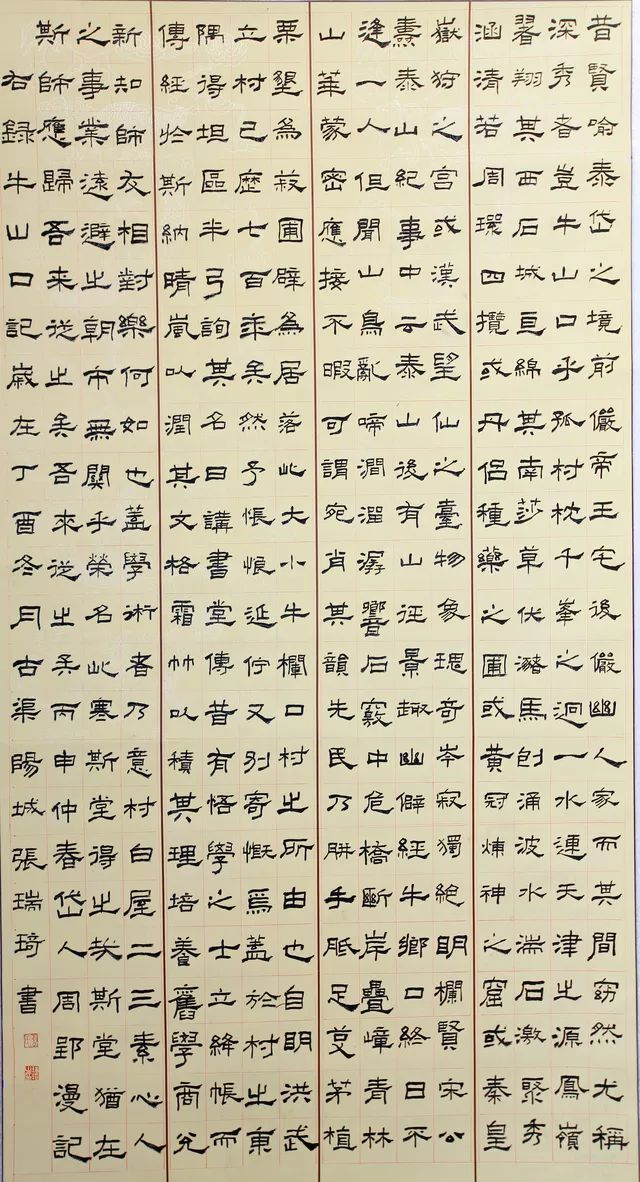 昔賢喻泰岱之境前儼帝王宅後儼幽人家而其間窈然尤稱
深秀者豈牛山口乎孤村枕千峯之迥一水連天津之源鳳嶺
翥翔其西石城亘綿其南莎草伏瀦馬刨涌波水湍石激聚秀
涵清若周環四攬或丹侶種藥之圃或黃冠煉神之窟或秦皇
嶽狩之宮或漢武望仙之臺物象瑰奇岑寂獨絕明欄賢宋公
燾泰山紀事中云泰山後有山徑景趣幽僻經牛鄉口終日不
逢一人但聞山鳥亂啼澗溜潺響石竅中危橋斷岸疊嶂青林
山華蒙密應接不暇可謂宛肖其韻先民乃胼手胝足芟茅植
栗墾為菽圃辟為居落此大小牛欄口村之所由也自明洪武
立村已歷七百年矣然予悵悢延佇又別寄慨焉蓋於村之東
隅得坦區半弓詢其名曰講書堂傳昔有悟學之士立絳帳而
傳經於斯納晴嵐以潤其文格霜竹以積其理培養舊學商兌
新知師友相對樂何如也蓋學術者乃意村白屋二三素心人
之事業遠避之朝市無關乎榮名此寒斯堂得之矣斯堂猶在
斯師應歸吾來從之矣吾來從之矣丙申仲春岱人周郢漫記
右錄牛山口記歲在丁酉冬月古渠陽城張瑞琦書